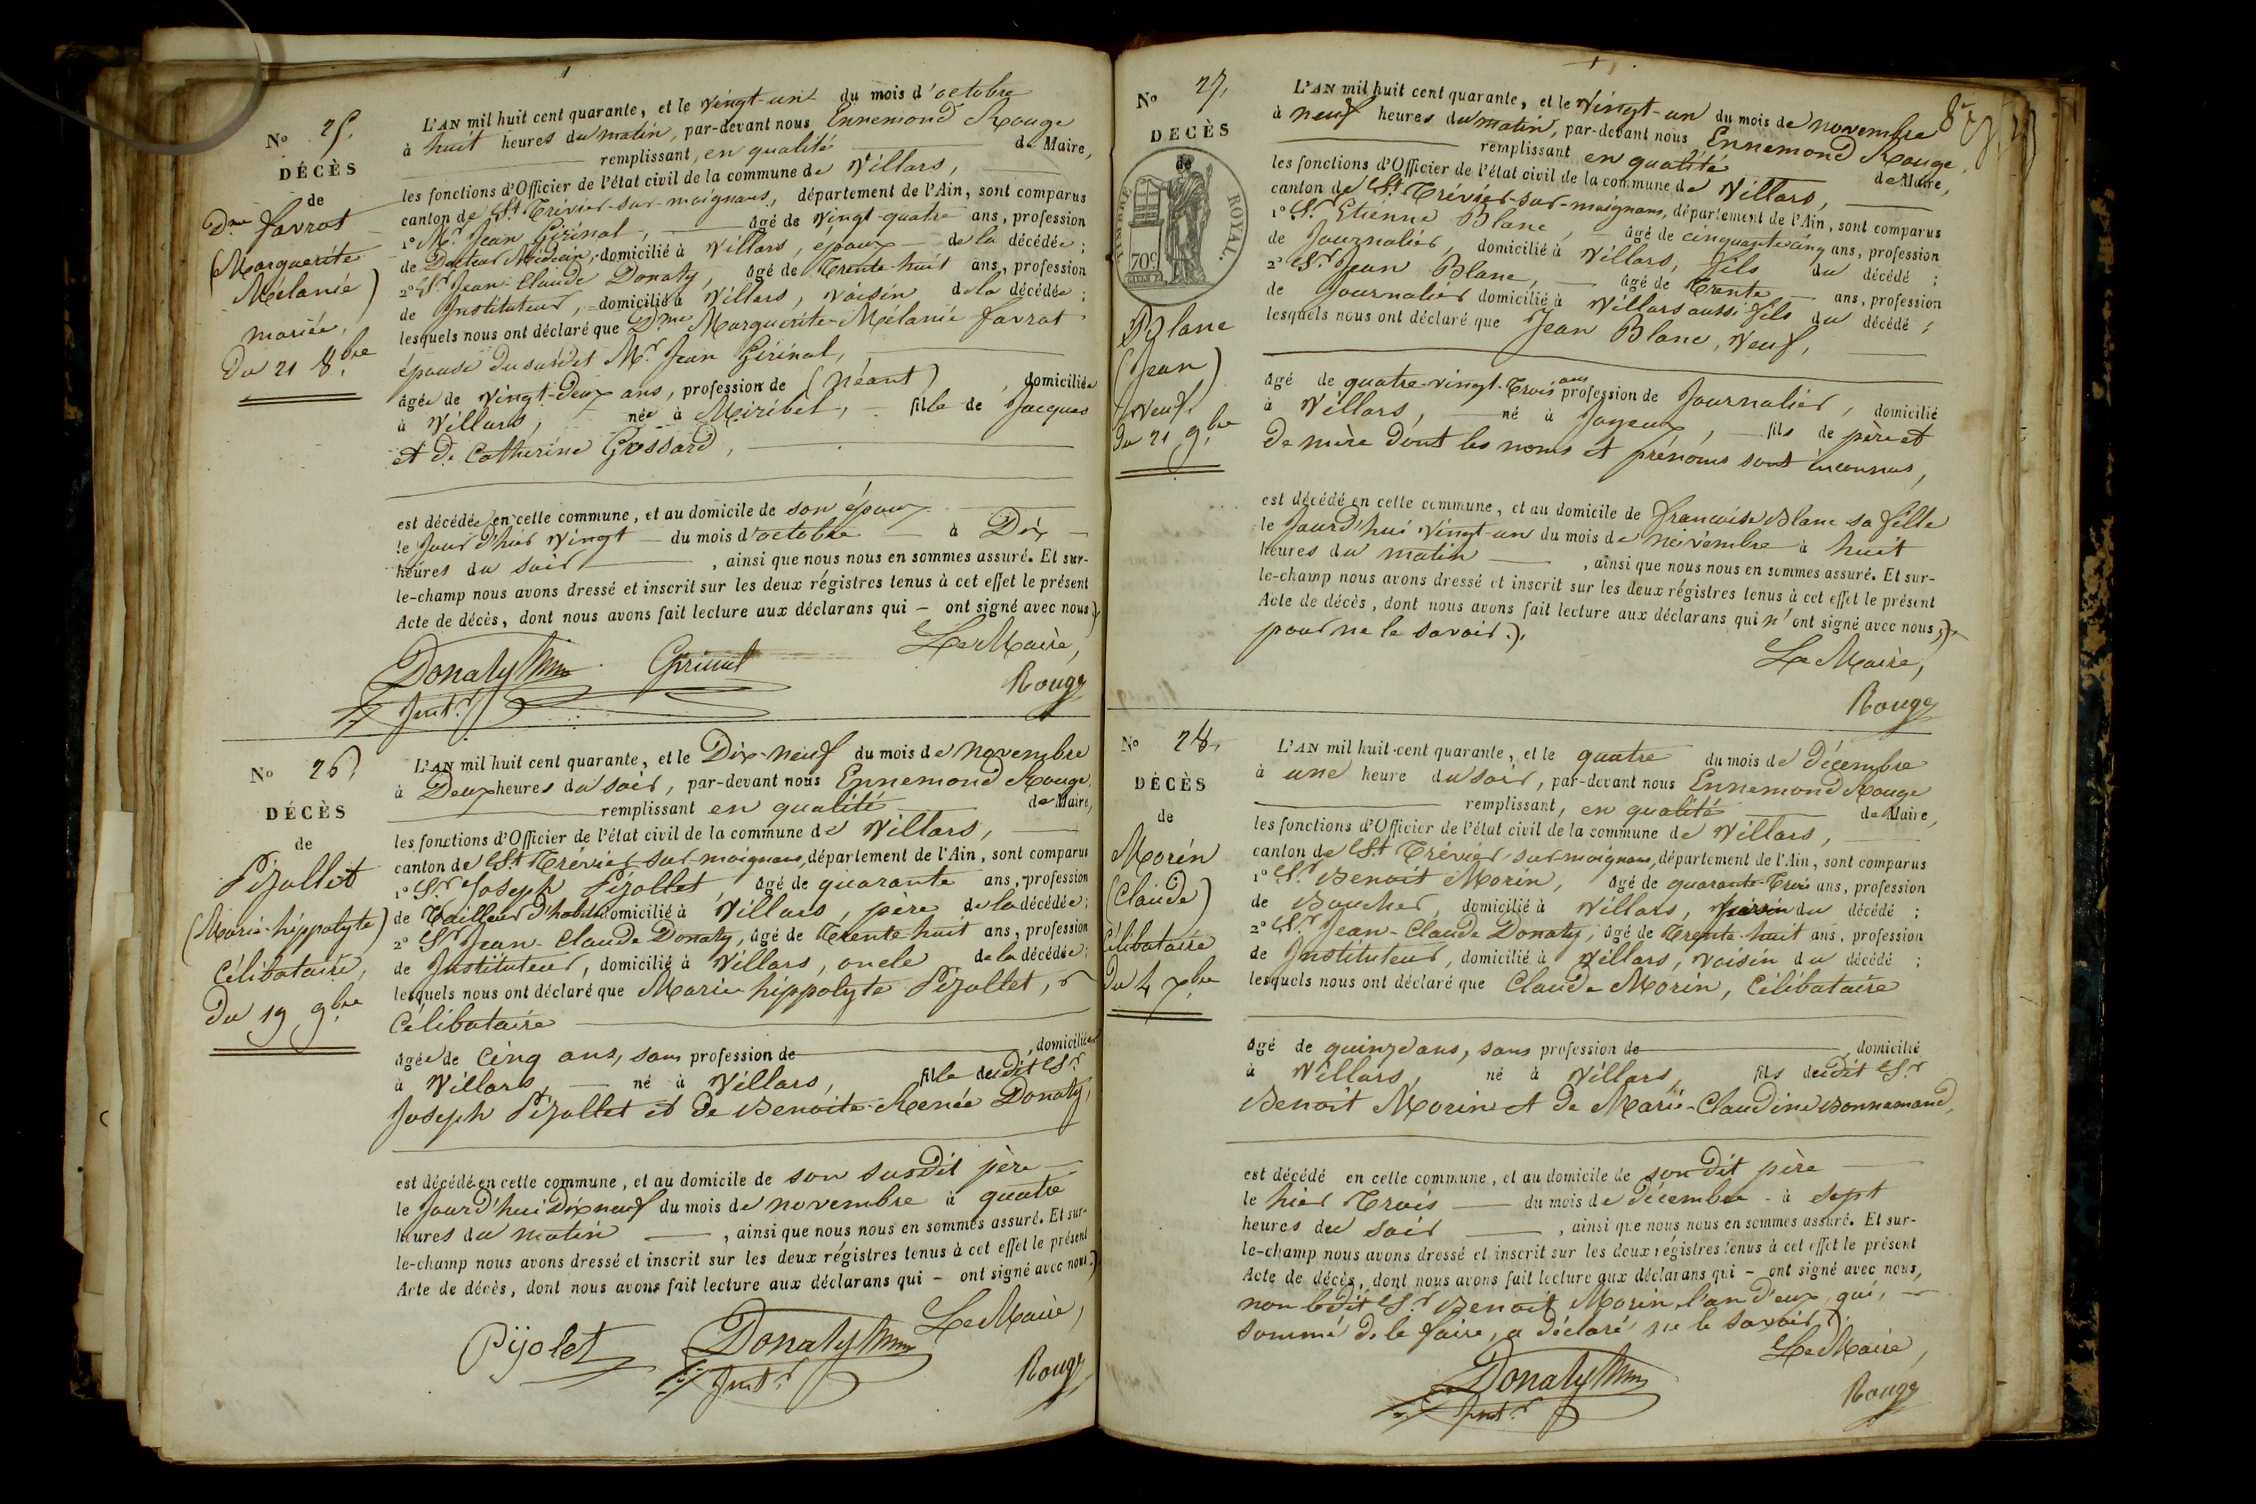 No 25.
DÉCÈS
de
Dme favrot
(Marguerite
Mélanie)
mariée,
Du 21 8.bre
L'AN mil huit cent quarante, et le vingt-un du mois d'octobre
à huit heures du matin, par-devant nous Ennemond Rouge
remplissant, en qualité de Maire,
les fonctions d'Officier de l'état civil de la commune de Villars,
canton de St Trévier-sur-moignans, département de l'Ain, sont comparus
1° Mr Jean Girinal, âgé de vingt-quatre ans, profession
de Docteur Médecin, domicilié à Villars, époux de la décédée;
2° Sr Jean-Claude Donaty, âgé de Trente-huit ans, profession
de Instituteur, domicilié à Villars, voisin de la décédée;
lesquels nous ont déclaré que Dme Marguerite-Mélanie favrot
épouse du susdit Mr Jean Girinal,
âgée de vingt-deux ans, profession de (Néant), domiciliée
à Villars, née à Miribel, fille de Jacques
et de Catherine Grossard,
est décédée en cette commune, et au domicile de son époux
le jour d'hier vingt du mois d'octobre à Dix
heures du soir, ainsi que nous nous en sommes assuré. Et sur-
le-champ nous avons dressé et inscrit sur les deux régistres tenus à cet effet le présent
Acte de décès, dont nous avons fait lecture aux déclarans qui – ont signé avec nous).
Le Maire,
Donaty
Rouge
Instr
No 26.
DÉCÈS
de
Pizollet
(Marie-hippolyte)
Célibataire,
Du 19 9.bre
L'AN mil huit cent quarante, et le Dix-neuf du mois de novembre
à Deux heures du soir, par-devant nous Ennemond Rouge
remplissant en qualité de Maire,
les fonctions d'Officier de l'état civil de la commune de Villars,
canton de St Trévier-sur-moignans, département de l'Ain, sont comparus
1° Sr Joseph Pizollet, âgé de quarante ans, profession
de Tailleur d'habits domicilié à Villars, père de la décédée;
2° Sr Jean-Claude Donaty, âgé de Trente-huit ans, profession
de Instituteur, domicilié à Villars, oncle de la décédée;
lesquels nous ont déclaré que Marie hippolyte Pizollet,
Célibataire
âgée de cinq ans, sans profession de domiciliée
à Villars, né à Villars, fille dudit Sr
Joseph Pizollet et de Benoite-Renée Donaty,
est décédé en cette commune, et au domicile de son susdit père
le jourd'hui Dix neuf du mois de novembre à quatre
heures du matin, ainsi que nous nous en sommes assuré. Et sur-
le-champ nous avons dressé et inscrit sur les deux régistres tenus à cet effet le présent
Acte de décès, dont nous avons fait lecture aux déclarans qui – ont signé avec nous.)
Le Maire,
Pijolet Donaty
Rouge
Instr
No 27.
DÉCÈS
de
TIMBRE ROYAL.
70c
Blanc
(Jean)
Veuf,
Du 21 9.bre
L'AN mil huit cent quarante, et le vingt-un du mois de novembre
à neuf heures du matin, par-devant nous Ennemond Rouge
remplissant en qualité de Maire,
les fonctions d'Officier de l'état civil de la commune de Villars,
canton de St Trévier-sur-moignans, département de l'Ain, sont comparus
1° Sr Etienne Blanc, âgé de cinquante-cinq ans, profession
de Journalier, domicilié à Villars, fils du décédé;
2° Sr Jean Blanc, âgé de Trente ans, profession
de Journalier domicilié à Villars aussi fils du décédé;
lesquels nous ont déclaré que Jean Blanc, Veuf,
âgé de quatre-vingt-Trois ans profession de Journalier, domicilié
à Villars, né à Joyeux, fils de père et
de mère dont les noms et prénoms sont inconnus,
est décédé en cette commune, et au domicile de francoise Blanc sa fille
le Jourd'hui vingt-un du mois de novembre à huit
heures du matin, ainsi que nous nous en sommes assuré. Et sur-
le-champ nous avons dressé et inscrit sur les deux régistres tenus à cet effet le présent
Acte de décès, dont nous avons fait lecture aux déclarans qui n'ont signé avec nous,
pour ne le savoir.).
Le Maire,
Rouge
No 28.
DÉCÈS
de
Morin
(Claude)
Célibataire
Du 4 xbre
L'AN mil huit cent quarante, et le quatre du mois de décembre
à une heure du soir, par-devant nous Ennemond Rouge
remplissant, en qualité de Maire,
les fonctions d'Officier de l'état civil de la commune de Villars,
canton de St Trévier-sur-moignans, département de l'Ain, sont comparus
1° Sr Benoit Morin, âgé de quarante-Trois ans, profession
de Boucher, domicilié à Villars, du décédé;
2° Sr Jean-Claude Donaty, âgé de Trente-huit ans, profession
de Instituteur, domicilié à Villars, voisin du décédé;
lesquels nous ont déclaré que Claude Morin, Célibataire
âgé de quinze ans, sans profession de domicilié
à Villars, né à Villars, fils dudit Sr
Benoit Morin et de Marie-Claudine Bonnamand,
est décédé en cette commune, et au domicile de son dit père
le hier Trois du mois de décembre à sept
heures du soir, ainsi que nous nous en sommes assuré. Et sur-
le-champ nous avons dressé et inscrit sur les deux régistres tenus à cet effet le présent
Acte de décès, dont nous avons fait lecture aux déclarans qui – ont signé avec nous,
non ledit Sr Benoit Morin, l'un d'eux, qui,
sommé de le faire, a déclaré ne le savoir.).
Le Maire,
Donaty
Rouge
Instr